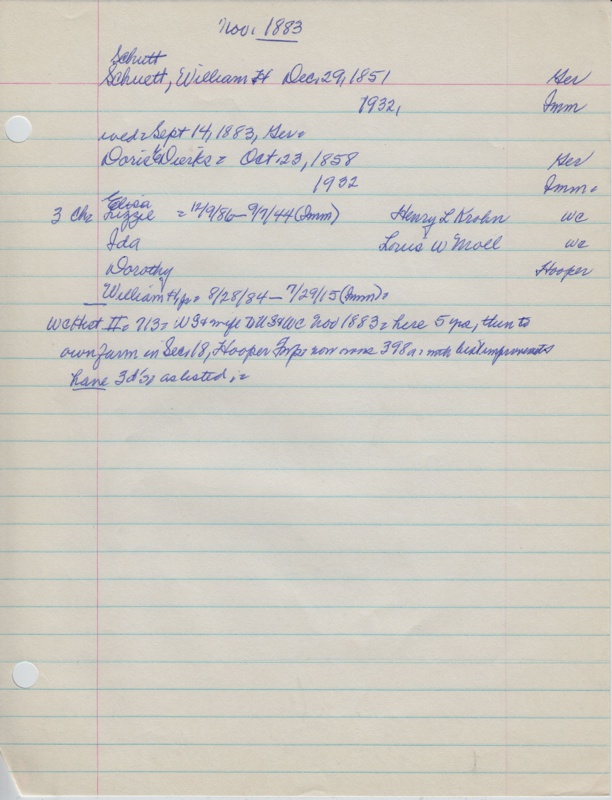 Nov. 1883
Schutt
Schuett, William H Dec. 29, 1851 Ger
1932, Imm
wed = Sept 14, 1883, Ger =
Doris Dierks = Oct. 23, 1858 Ger
1932 Imm =
Elisa
3 Ch = Lizzie = 12/9/86 - 9/7/44 (Imm) Henry L Krohn WC
Ida Louis W Moll WC
Dorothy Hooper
William H Jr = 8/28/84 - 7/29/15 (Imm) =
WC Hist II = 713 = WS & wife to US & WC Nov 1883 = here 5 yrs, then to
own farm in Sec 18, Hooper Twp = now owns 398 a = with best improvements
have 3 d's as listed, =